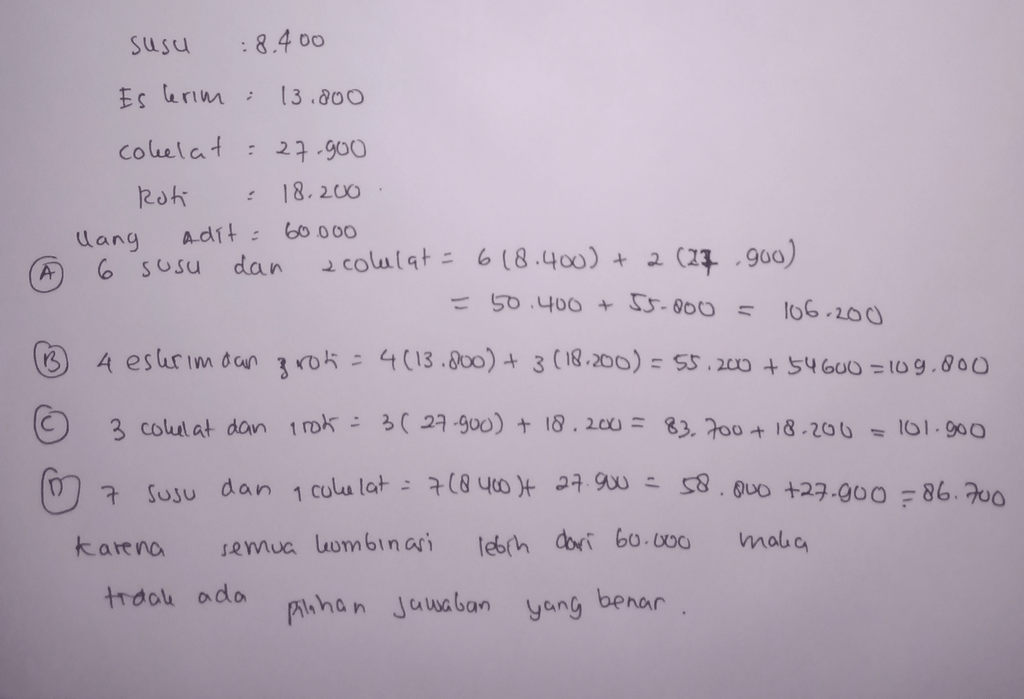 susu : 8.400
Es krim : 13.800
cokelat : 27.900
Roti : 18.200
Uang Adit = 60.000
(A) 6 susu dan 2 cokelat = 6 (8.400) + 2 (27.900)
= 50.400 + 55.800 = 106.200
(B) 4 eskrim dan 3 roti = 4 (13.800) + 3 (18.200) = 55.200 + 54600 = 109.800
(C) 3 cokelat dan 1 roti = 3 ( 27.900) + 18.200 = 83.700 + 18.200 = 101.900
(D) 7 susu dan 1 cokelat = 7 (8 400) + 27.900 = 58.800 + 27.900 = 86.700
Karena semua kombinasi lebih dari 60.000 maka
tidak ada pilihan jawaban yang benar.